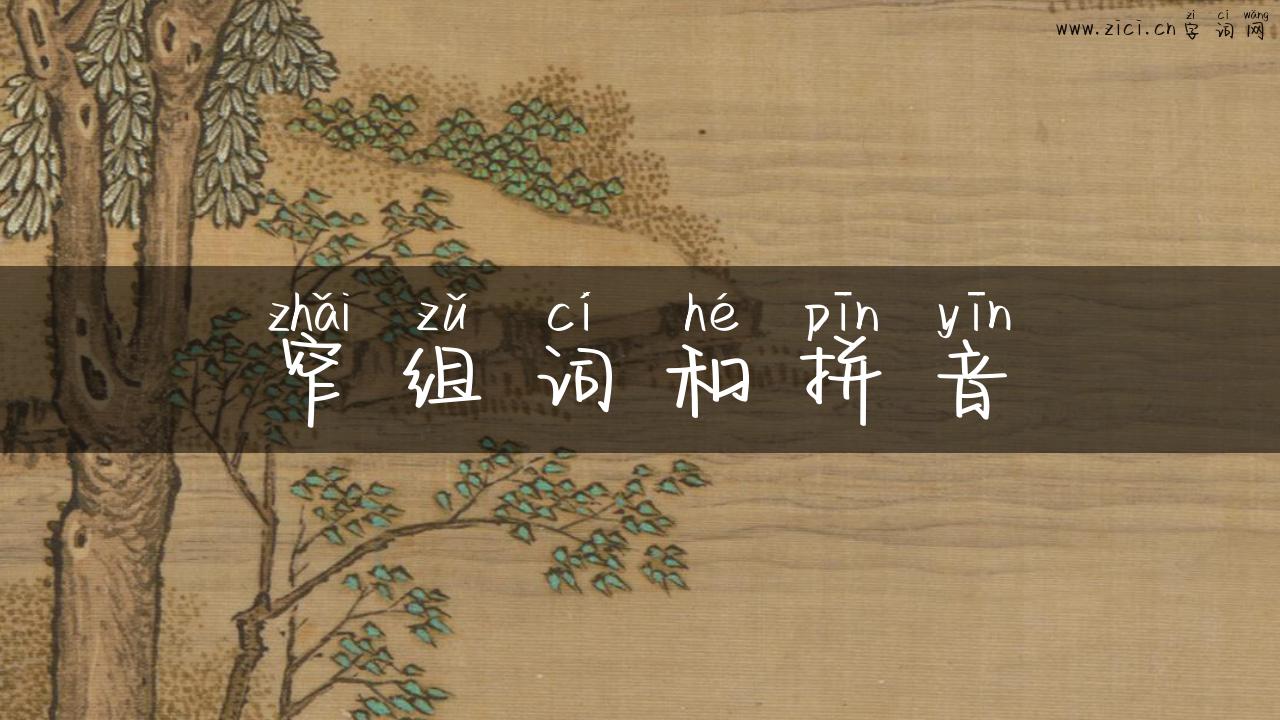 zì cí wǎng
www.zici.cn 字 词 网
zhǎi zǔ cí hé pīn yīn
窄 组 词 和 拼 音